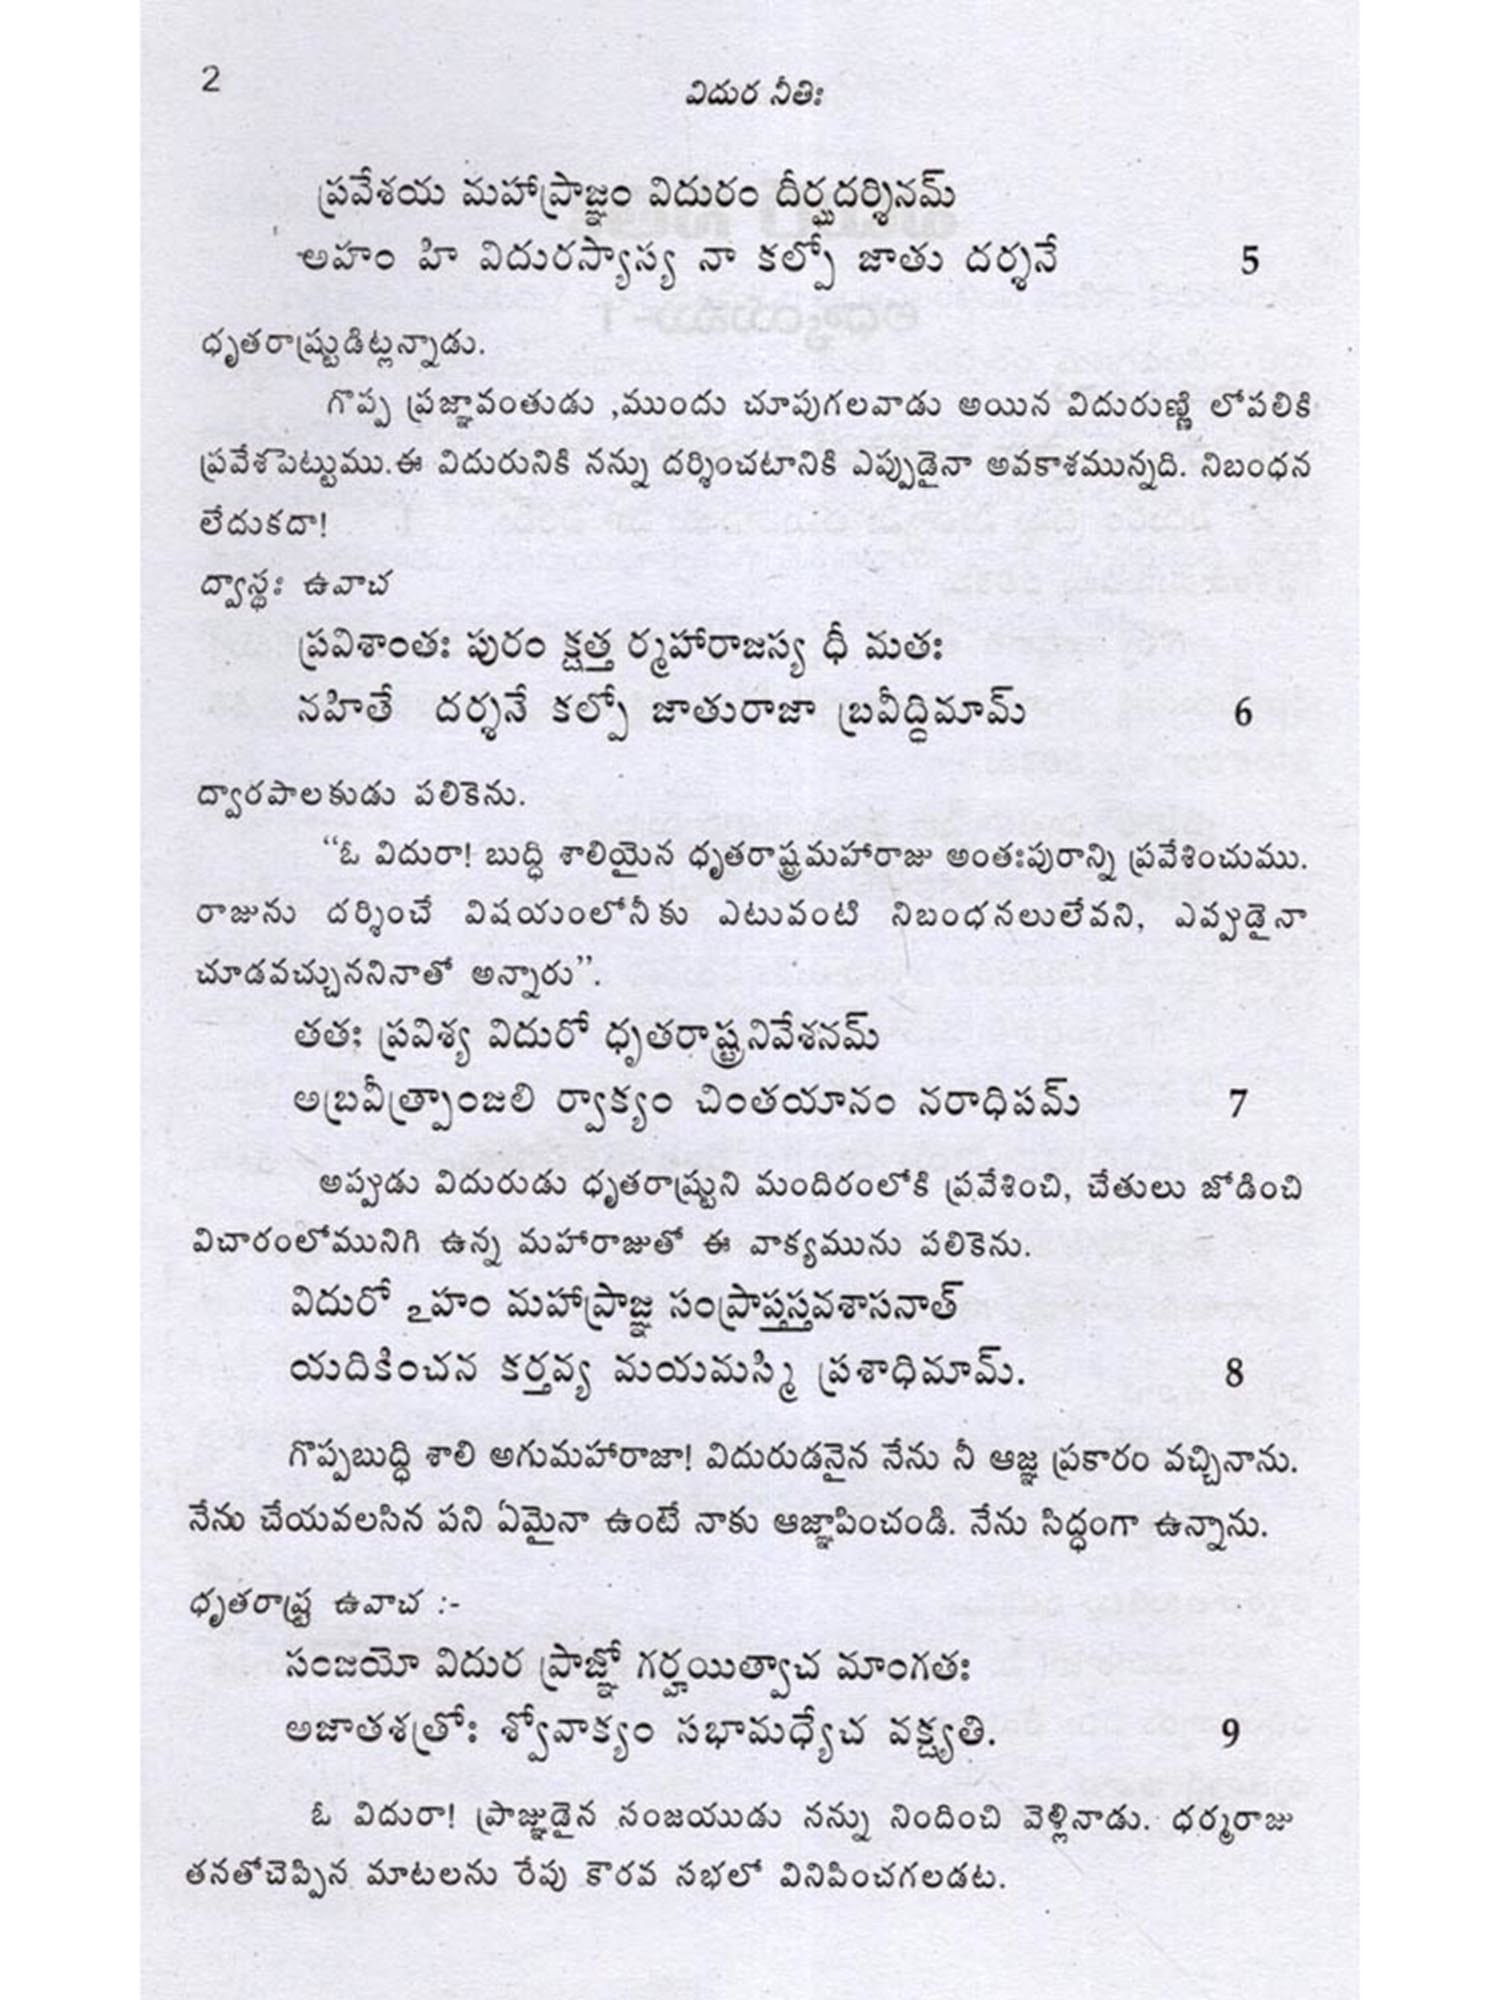 2
విదుర నీతిః
ప్రవేశయ మహాప్రాజ్ఞం విదురం దీర్ఘదర్శినమ్
అహం హి విదురస్యాస్య నా కల్పో జాతు దర్శనే 5
ధృతరాష్ట్రుడిట్లన్నాడు.
గొప్ప ప్రజ్ఞావంతుడు ,ముందు చూపుగలవాడు అయిన విదురుణ్ణి లోపలికి
ప్రవేశపెట్టుము.ఈ విదురునికి నన్ను దర్శించటానికి ఎప్పుడైనా అవకాశమున్నది. నిబంధన
లేదుకదా!
ద్వాస్థః ఉవాచ
ప్రవిశాంతః పురం క్షత్త ర్మహారాజస్య ధీ మతః
నహితే దర్శనే కల్పో జాతురాజా బ్రవీద్ధిమామ్ 6
ద్వారపాలకుడు పలికెను.
“ఓ విదురా! బుద్ధి శాలియైన ధృతరాష్ట్రమహారాజు అంతఃపురాన్ని ప్రవేశించుము.
రాజును దర్శించే విషయంలోనీకు ఎటువంటి నిబంధనలులేవని, ఎప్పుడైనా
చూడవచ్చుననినాతో అన్నారు”.
తతః ప్రవిశ్య విదురో ధృతరాష్ట్రనివేశనమ్
అబ్రవీత్ప్రాంజలి ర్వాక్యం చింతయానం నరాధిపమ్ 7
అప్పుడు విదురుడు ధృతరాష్ట్రుని మందిరంలోకి ప్రవేశించి, చేతులు జోడించి
విచారంలోమునిగి ఉన్న మహారాజుతో ఈ వాక్యమును పలికెను.
విదురో ఽహం మహాప్రాజ్ఞ సంప్రాప్తస్తవశాసనాత్
యదికించన కర్తవ్య మయమస్మి ప్రశాధిమామ్. 8
గొప్పబుద్ధి శాలి అగుమహారాజా! విదురుడనైన నేను నీ ఆజ్ఞ ప్రకారం వచ్చినాను.
నేను చేయవలసిన పని ఏమైనా ఉంటే నాకు ఆజ్ఞాపించండి. నేను సిద్ధంగా ఉన్నాను.
ధృతరాష్ట్ర ఉవాచ :-
సంజయో విదుర ప్రాజ్ఞో గర్హయిత్వాచ మాంగతః
అజాతశత్రోః శ్వోవాక్యం సభామధ్యేచ వక్ష్యతి. 9
ఓ విదురా! ప్రాజ్ఞుడైన సంజయుడు నన్ను నిందించి వెళ్లినాడు. ధర్మరాజు
తనతోచెప్పిన మాటలను రేపు కౌరవ సభలో వినిపించగలడట.